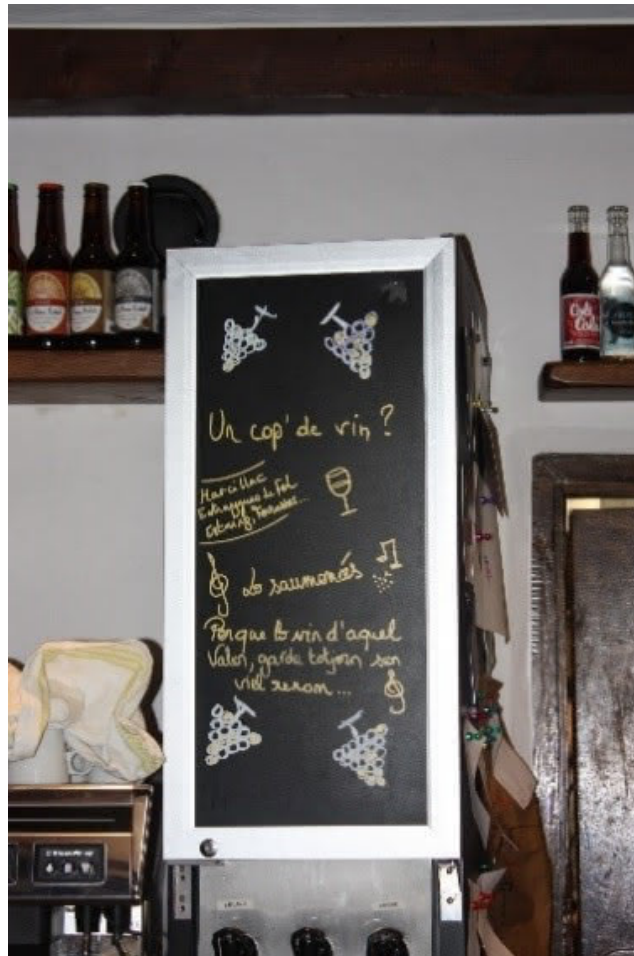 Un cop' de vin ?
Marcillac
Entraygues le Fel
Estaing,
Lo saumonés
Perque lo vin d'aquel
Valon, garda totjorn son
vièl renom...